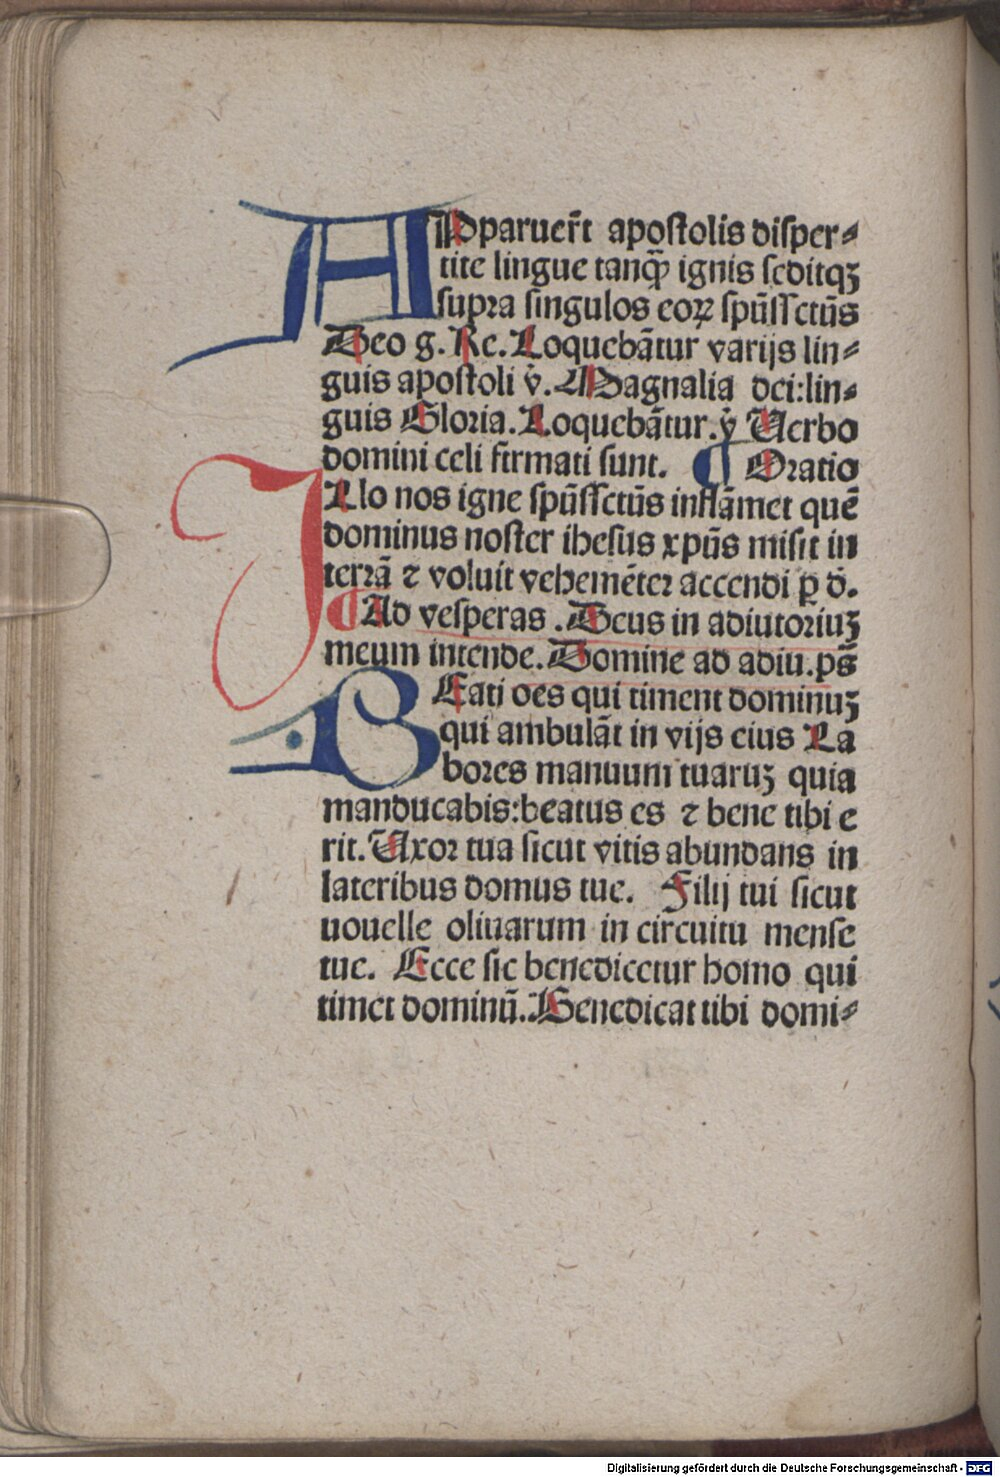 APparuer̄t apostolis disper⸗
tite lingue tanq̄ȝ ignis seditqȝ
supra singulos eoꝝ spūssctūs
Deo g. Re. Loquebātur varijs lin⸗
guis apostoli v̇. Magnalia dei:lin⸗
guis Gloria. Loquebātur. v̇ Uerbo
domini celi firmati sunt. ¶ Oratio
ILlo nos igne spūssctūs inflāmet quē
dominus noster ihesus xpūs misit in
terrā ⁊ voluit vehemēter accendi p̲ d̄.
¶ Ad vesperas . Deus in adiutoriuȝ
meum intende. Domine ad adiu. ps̄
BEati oēs qui timent dominuȝ
qui ambulāt in vijs eius La
bores manuum tuaruȝ quia
manducabis:beatus es ⁊ bene tibi e
rit. Uxor tua sicut vitis abundans in
lateribus domus tue. Filij tui sicut
nouelle oliuarum in circuitu mense
tue. Ecce sic benedicetur homo qui
timet dominū. Benedicat tibi domi⸗
Digitalisierung gefördert durch die Deutsche Forschungsgemeinschaft - DFG